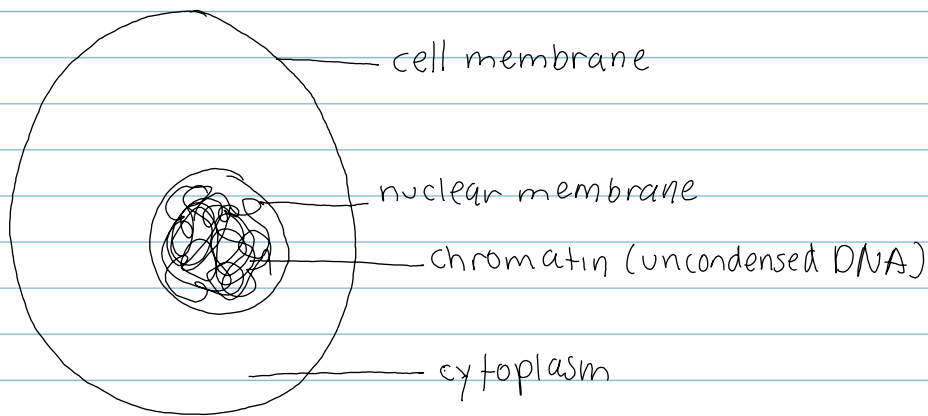 cell membrane
nuclear membrane
chromatin (uncondensed DNA)
cytoplasm